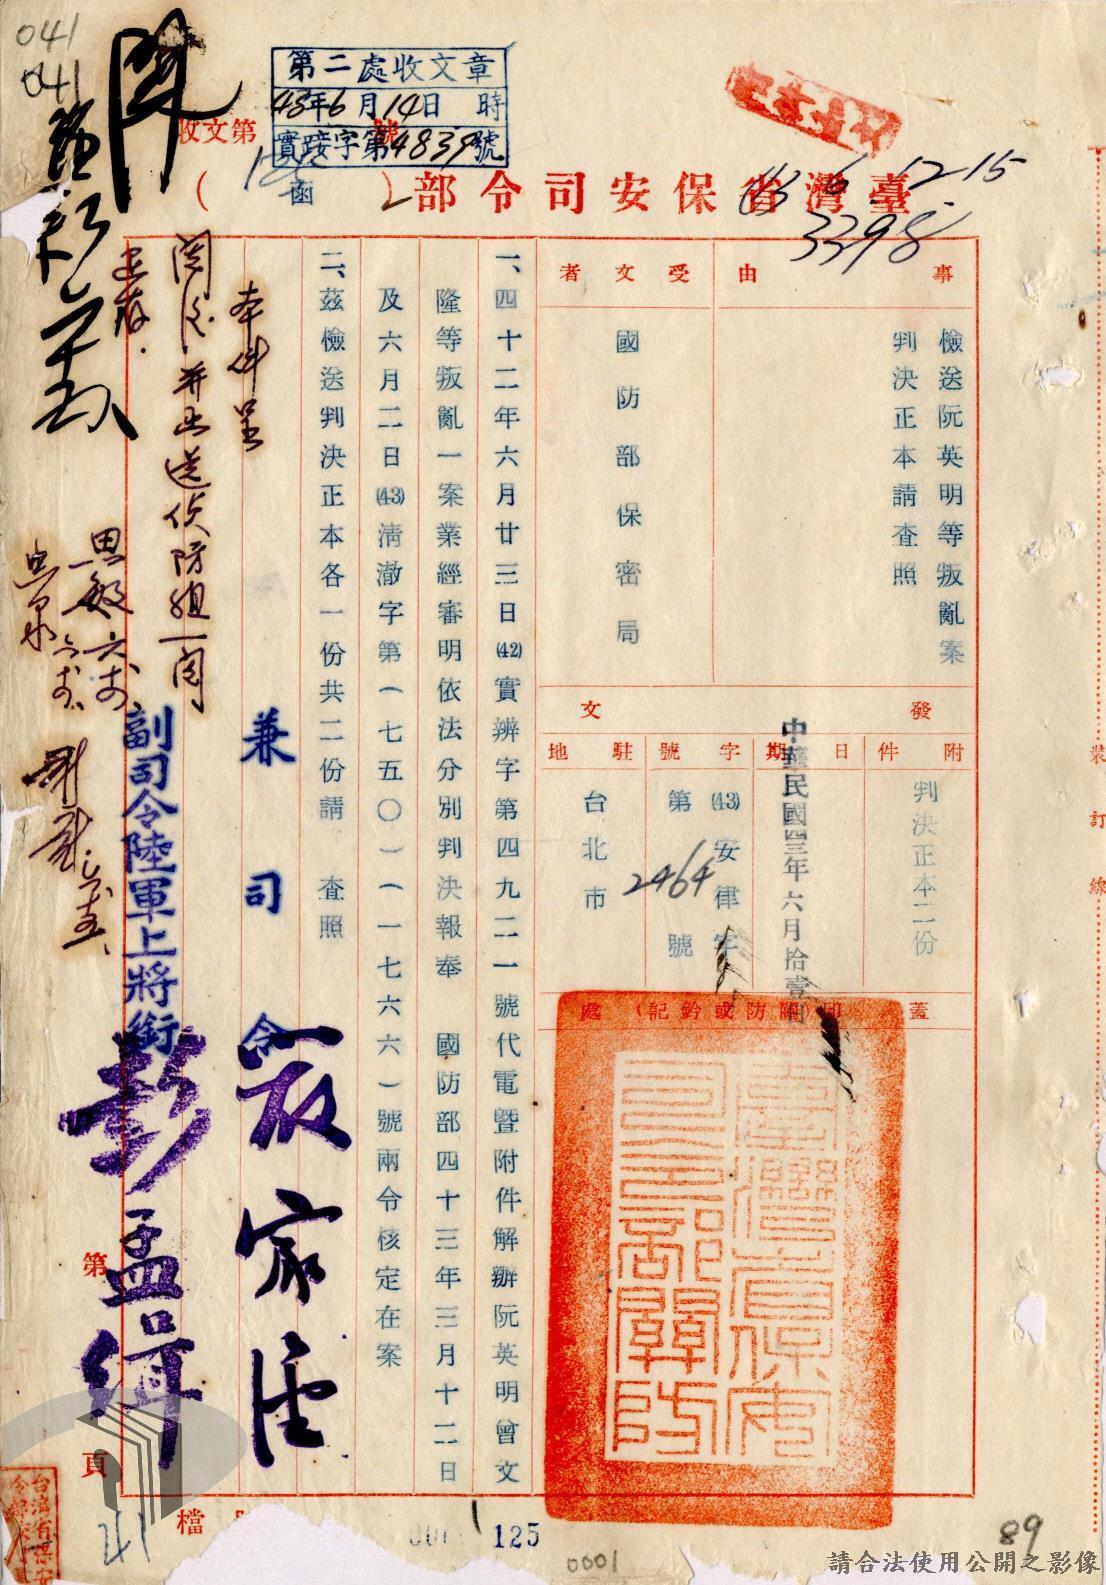 041
041
第二處收文章
43年6月14日 時
實踐字第4839號
收文第 號
臺灣省保安司令部(函)
43 6 12-15
3398
事由
檢送阮英明等叛亂案
判決正本請查照
受文者
國防部保密局
發文
附件
判決正本二份
日期
中華民國四三年六月拾壹日
字號
(43)安律字
第2464號
駐地
台北市
蓋印(關防或鈐記)處
臺灣省保安司令部關防
一、四十二年六月廿三日(42)實辨字第四九二一號代電暨附件解辦阮英明曾文
隆等叛亂一案業經審明依法分別判決報奉 國防部四十三年三月十二日
及六月二日(43)清澈字第(七五〇)(一七六六)號兩令核定在案
二、茲檢送判決正本各一份共二份請 查照
兼司令
副司令陸軍上將銜 彭孟緝
本件呈
閱後並送偵防組一閱
裝訂線
第 頁
檔
41
125
0001
89
請合法使用公開之影像